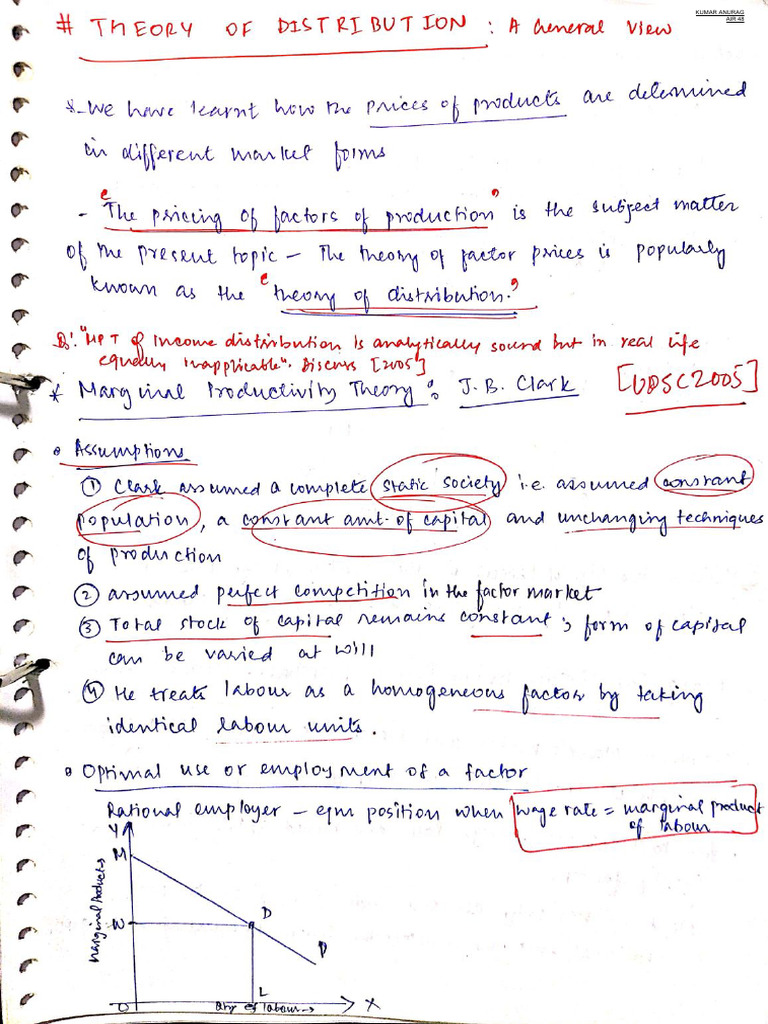 KUMAR ANURAG
AIR 48
# THEORY OF DISTRIBUTION : A General View
*- We have learnt how the prices of products are determined
in different market forms
- "The pricing of factors of production" is the subject matter
of the present topic - The theory of factor prices is popularly
known as the "theory of distribution."
Q:. "MPT of Income distribution is analytically sound but in real life
equally inapplicable". Discuss [2005]
* Marginal Productivity Theory : J. B. Clark [UPSC 2005]
• Assumptions
① Clark assumed a complete static society i.e. assumed constant
population, a constant amt. of capital and unchanging techniques
of production
② assumed perfect competition in the factor market
③ Total stock of capital remains constant; form of capital
can be varied at will
④ He treats labour as a homogeneous factor by taking
identical labour units.
• Optimal use or employment of a factor
Rational employer - eqm position when wage rate = marginal product
of labour
Y
M
W
Marginal Product→
D
D
L
O
Qty of labour→
X